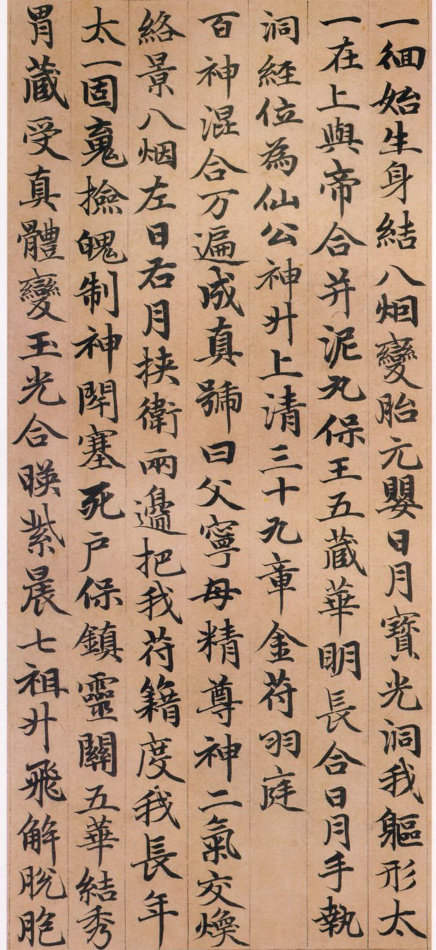 一徊始生身結八烟變胎元嬰日月寶光洞我軀形太
一在上與帝合并泥丸保王五藏華明長合日月手執
洞經位為仙公神升上清三十九章金苻羽庭
百神混合万遍成真號曰父寧母精尊神二氣交煥
絡景八烟左日右月挾衛兩邊把我苻籍度我長年
太一固䰟撿魄制神閇塞死户保鎮靈關五華結秀
胃藏受真體變玉光合暎紫晨七祖升飛解脱胞